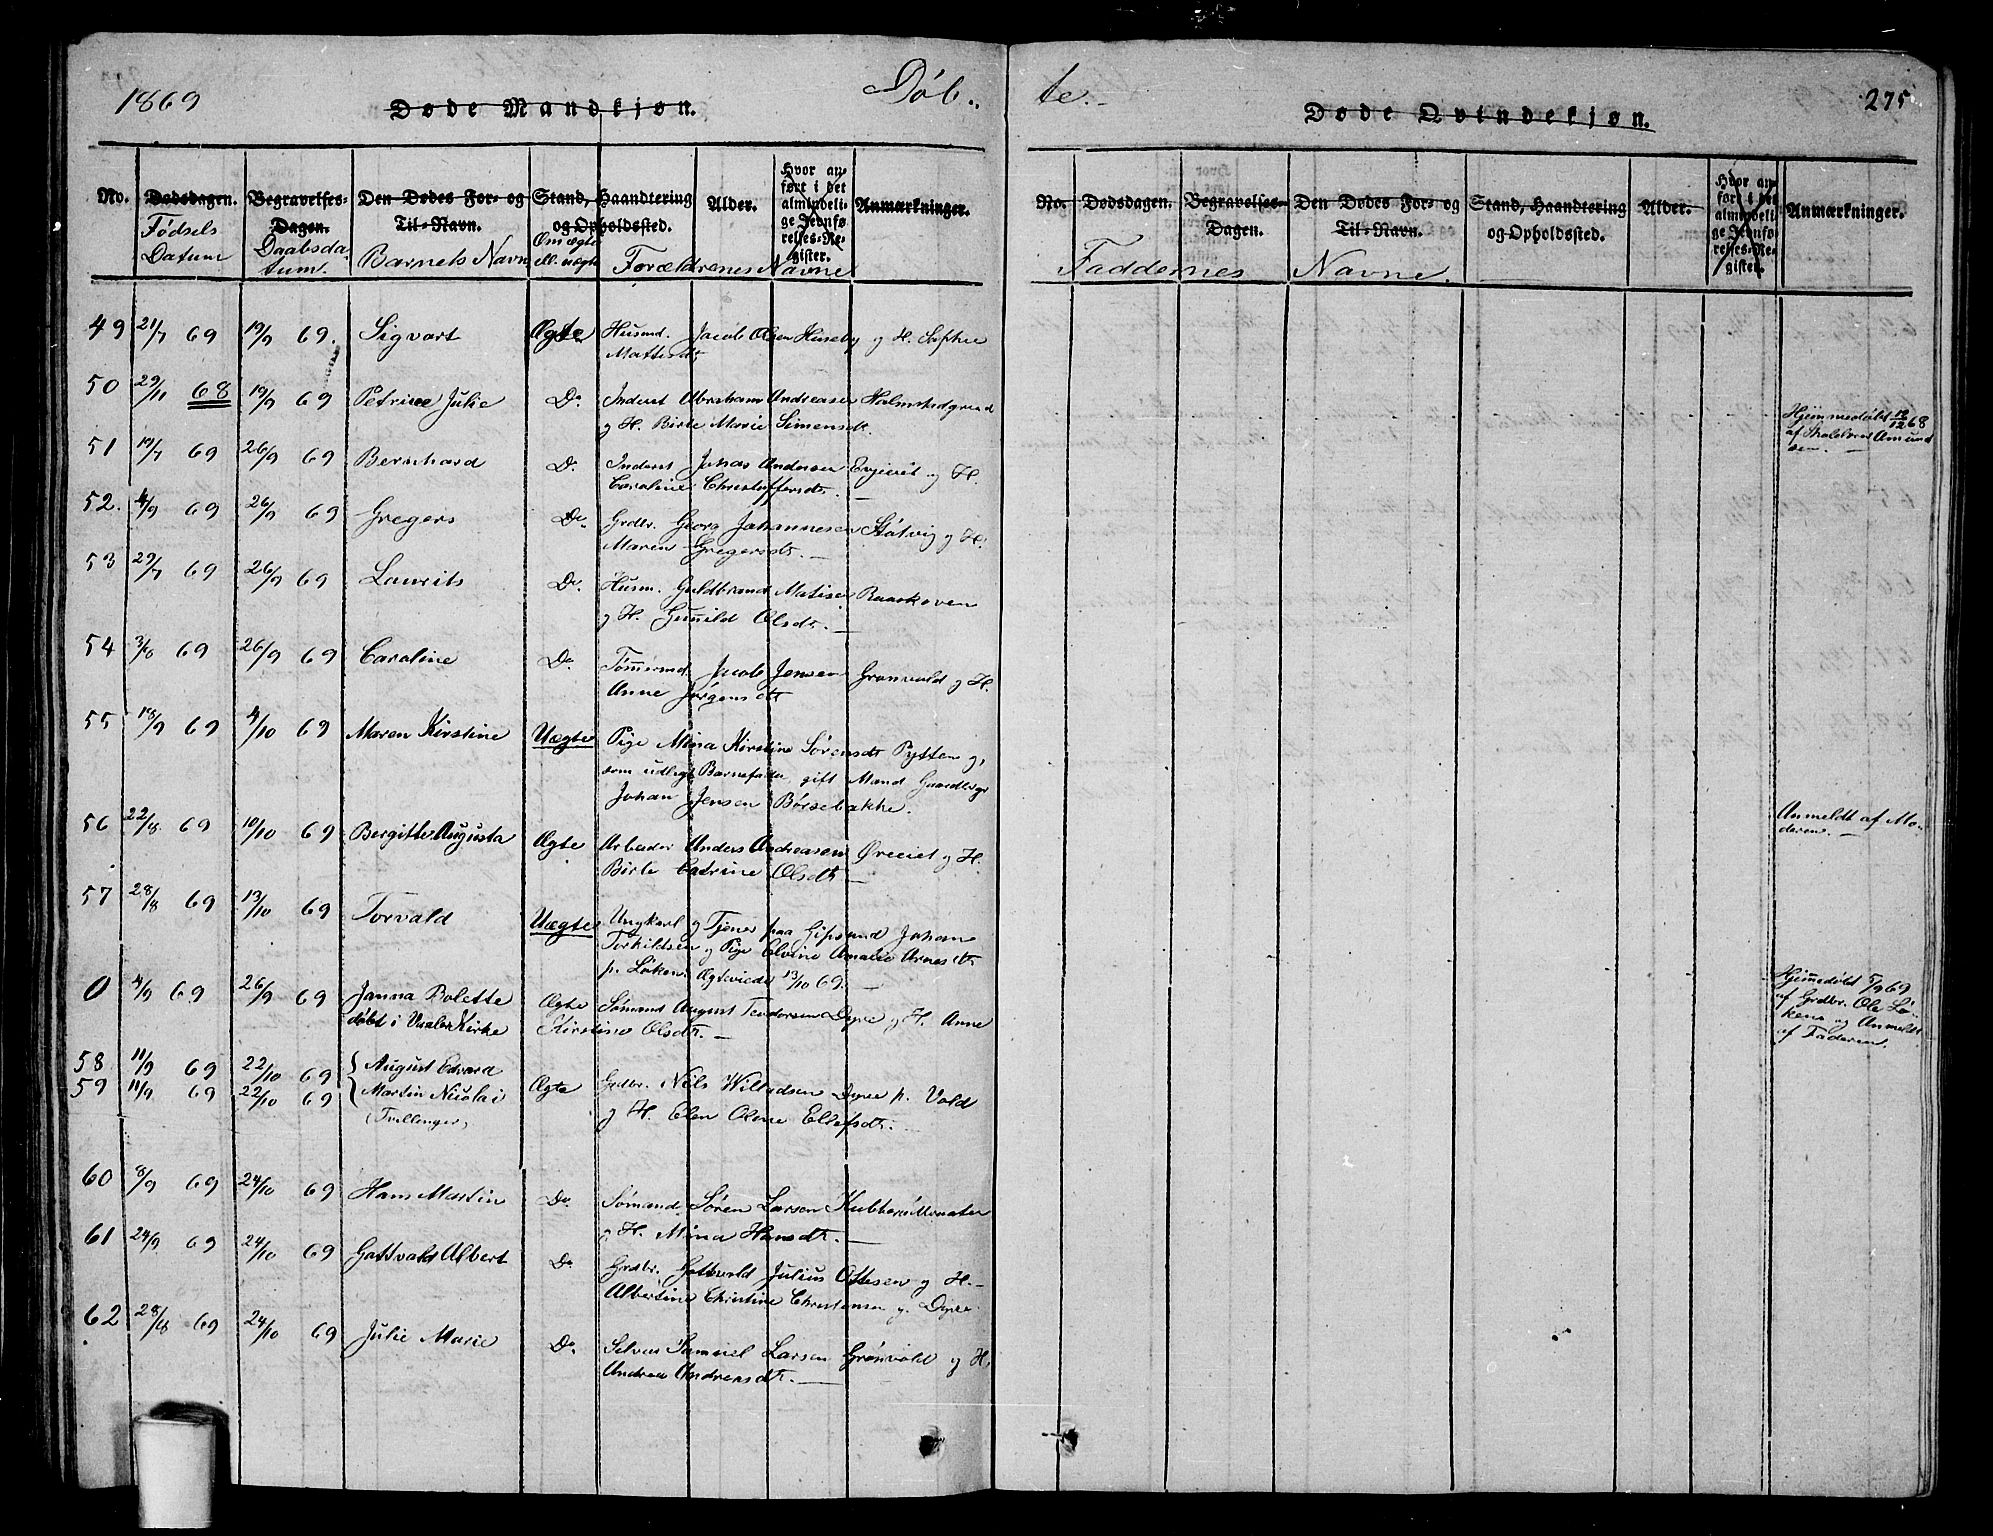 1869
Døb..
te.-
275
Døde Mandkjøn.
Døde Qvindekjøn.
No. Dødsdagen. Begravelses-Dagen. Den Dødes For- og Til-Navn. Stand, Haandtering og Opholdssted. Alder. Hvor anført i det almindelige Jevnførelses-Register. Anmærkninger.
Fødsels Datum Daabsdatum. Barnets Navn Om ægte ell. uægte Forældrenes Navne
No. Dødsdagen. Begravelses-Dagen. Den Dødes For- og Til-Navn. Stand, Haandtering og Opholdssted. Alder. Hvor anført i det almindelige Jevnførelses-Register. Anmærkninger.
Faddernes Navne
49 21/7 69 19/9 69. Sigvart Ægte Husmd. Jacob Olsen Huseby og H. Sophie
Mattisdt
50 29/11 68 19/9 69 Petrine Julie Do. Inderst Abraham Andreasen Halmstadgrund
og H. Birte Marie Simensdt.
Hjemmedøbt 12/12 68
af Skolelærer Amund
sen.
51 19/7 69 26/9 69 Bernhard Do. Inderst Johas Andersen Evjeviet og H.
Caroline Christoffersdt.
52. 4/9 69 26/9 69 Gregers Do. Grdbr. Georg Johannesen Støtvig og H.
Maren Gregersdt.
53 29/7 69 26/9 69 Laurits Do. Husm. Guldbrand Matisen Raaskoven
og H. Gunild Olsdt.
54 3/8 69 26/9 69 Caroline Do. Tømmermd. Jacob Jensen Grønvold og H.
Anne Jørgensdt
55 18/9 69 4/10 69 Maren Kirstine Uægte Pige Mina Kirstine Sørensdt Pytten og,
som udlagt Barnefader, gift Mand Gaardbrgr
Johan Jensen Børsebakke.
Anmeldt af Mo-
deren.
56 22/8 69 10/10 69 Bergitte Augusta Ægte Arbeider Anders Andreasen Øreeiet og H.
Birte Catrine Olsdt
57 28/8 69 13/10 69 Torvald Uægte Ungkarl og Tjener paa Gipsund Johan
Torkildsen og Pige Elvine Amalie Arnesdt
p. Løken. Ægteviede 13/10 69.
0 4/9 69 26/9 69 Janna Bolette Ægte Sømand August Teodorsen Dyre og H. Anne
døbt i Vaaler Kirke Kirstine Olsdt.
Hjemmedøbt 5/9 69
af Grdbr. Ole Lø-
kene og Anmeldt
af Faderen.
58 11/9 69 22/10 69 August Edvard
59 11/9 69 22/10 69 Martin Nicolai Ægte Grdbr. Nils Willadsen Dyre p. Vold
(Tvillinger) og H. Elen Oline Ellefsdt.
60 8/9 69 24/10 69 Hans Martin Do. Sømand. Søren Larsen Kubberød
og H. Mina Hansdt.
61 24/9 69 24/10 69 Gottvald Albert Do. Grdbr. Gottvald Julius Ottesen og H.
Albertine Christine Christensen p. Dyre.
62 28/8 69 24/10 69 Julie Marie Do. Selveier Samuel Larsen Grønvold og H.
Andrea Andreasdt.